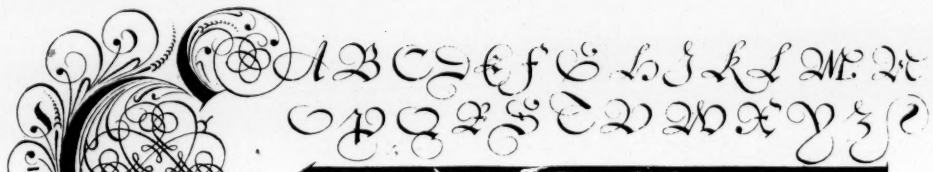 A B C D E F G H I K L M. N
O P Q R S T V W X Y Z